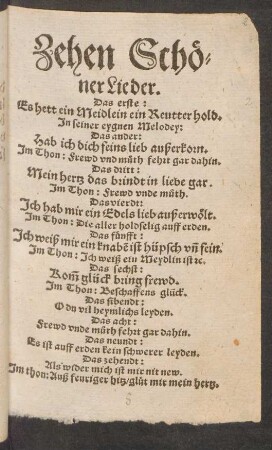 Zehen Schö-
ner Lieder.
Das erste:
Es hett ein Meidlein ein Reutter hold.
In seiner eygnen Melodey:
Das ander:
Hab ich dich feins lieb außerkorn.
Im Thon: Frewd vnd můth fehrt gar dahin.
Das dritt:
Mein hertz das brindt in liebe gar.
Im Thon: Frewd vnde můth.
Das vierdt:
Ich hab mir ein Edels lieb außerwölt.
Im Thon: Die aller holdselig auff erden.
Das fünfft:
Ich weiß mir ein knabē ist hüpsch vn̄ fein.
Im Thon: Ich weiß ein Meydlin ist ꝛc.
Das sechst:
Kom̄ glück bring frewd.
Im Thon: Beschaffens glück.
Das sibendt:
O du vil heymlichs leyden.
Das acht:
Frewd vnde můth fehrt gar dahin.
Das neundt:
Es ist auff erden kein schwerer leyden.
Das zehendt:
Als wider mich ist mir nit new.
Im thon: Auß feuriger hitz/glüt mir mein hertz.